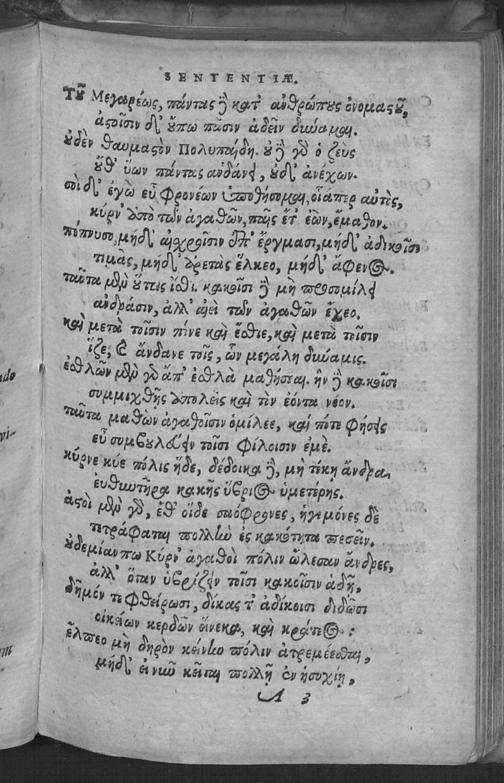 SENTENTIÆ.
Τοῦ Μεγαρέως, πάντας ἢ κατ' ἀνθρώπους ὀνομαστοῦ,
ἀστοῖσιν δ' οὔπω πᾶσιν ἁδεῖν δύναμαι.
οὐδὲν θαυμαστὸν Πολυπαίδη. οὐδὲ γὰρ ὁ ζεὺς
οὔθ' ὕων πάντας ἁνδάνει, οὔτ' ἀνέχων.
σοὶ δ' ἐγὼ εὖ φρονέων ὑποθήσομαι, οἷάπερ αὐτὸς,
κύρν' ἀπὸ τῶν ἀγαθῶν, παῖς ἔτ' ἐὼν, ἔμαθον.
πέπνυσο, μηδ' αἰσχροῖσιν ἐπ' ἔργμασι, μηδ' ἀδίκοισι
τιμὰς, μηδ' ἀρετὰς ἕλκεο, μηδ' ἄφενος.
ταῦτα μὲν οὕτως ἴσθι. κακοῖσι δὲ μὴ προσομίλει
ἀνδράσιν, ἀλλ' αἰεὶ τῶν ἀγαθῶν ἔχεο.
καὶ μετὰ τοῖσιν πίνε καὶ ἔσθιε, καὶ μετὰ τοῖσιν
ἵζε, καὶ ἅνδανε τοῖς, ὧν μεγάλη δύναμις.
ἐσθλῶν μὲν γὰρ ἄπ' ἐσθλὰ μαθήσεαι. ἢν δὲ κακοῖσι
συμμιχθῇς ἀπολεῖς καὶ τὸν ἐόντα νόον.
ταῦτα μαθὼν ἀγαθοῖσιν ὁμίλεε, καί ποτε φήσεις
εὖ συμβουλεύειν τοῖσι φίλοισιν ἐμέ.
κύρνε κύει πόλις ἥδε, δέδοικα δὲ, μὴ τέκῃ ἄνδρα
εὐθυντῆρα κακῆς ὕβριος ὑμετέρης.
ἀστοὶ μὲν γὰρ, ἔθ' οἵδε σαόφρονες, ἡγεμόνες δὲ
τετράφαται πολλὴν ἐς κακότητα πεσεῖν.
οὐδεμίαν πω Κύρν' ἀγαθοὶ πόλιν ὤλεσαν ἄνδρες,
ἀλλ' ὅταν ὑβρίζειν τοῖσι κακοῖσιν ἁδῇ,
δῆμόν τε φθείρωσι, δίκας τ' ἀδίκοισι διδῶσι
οἰκείων κερδῶν εἵνεκα, καὶ κράτεος:
ἔλπεο μὴ δηρὸν κείνην πόλιν ἀτρεμέεσθαι,
μήδ' εἰ νῦν κεῖται πολλῇ ἐν ἡσυχίῃ,
A 3